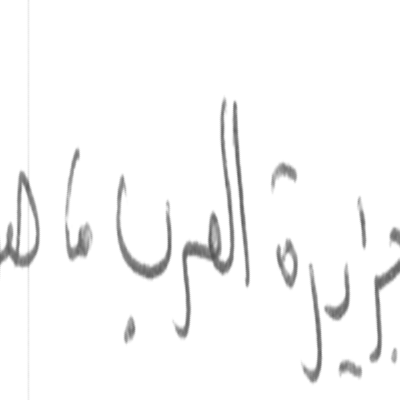 جزيرة العرب ما هي